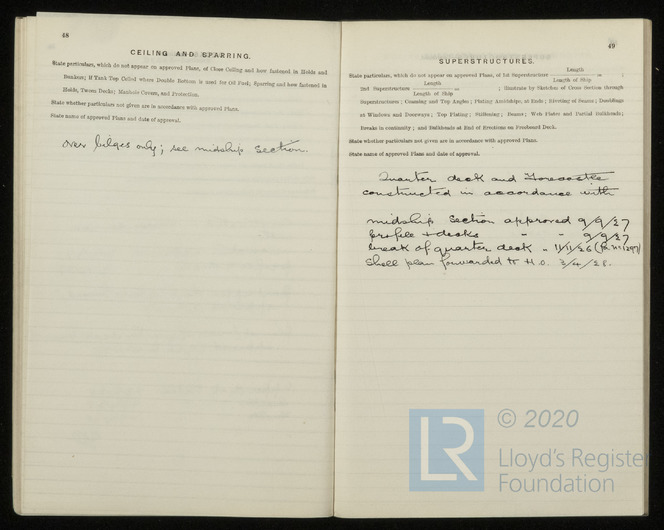 48
CEILING AND SPARRING.
State particulars, which do not appear on approved Plans, of Close Ceiling and how fastened in Holds and
Bunkers; if Tank Top Ceiled where Double Bottom is used for Oil Fuel; Sparring and how fastened in
Holds, Tween Decks; Manhole Covers, and Protection.
State whether particulars not given are in accordance with approved Plans.
State name of approved Plans and date of approval.
over bilges only; see midship section.
49
SUPERSTRUCTURES.
State particulars, which do not appear on approved Plans, of 1st Superstructure Length / Length of Ship = ;
2nd Superstructure Length / Length of Ship = ; Illustrate by Sketches of Cross Section through
Superstructures; Coaming and Top Angles; Plating Amidships, at Ends; Riveting of Seams; Doublings
at Windows and Doorways; Top Plating; Stiffening; Beams; Web Plates and Partial Bulkheads;
Breaks in continuity; and Bulkheads at End of Erections on Freeboard Deck.
State whether particulars not given are in accordance with approved Plans.
State name of approved Plans and date of approval.
Quarter deck and Forecastle
constructed in accordance with
midship section approved 9/9/27
profile + decks - - 9/9/27
break of quarter deck - 11/11/26
Shell plan forwarded to H.O. 3/4/28.
LR © 2020
Lloyd's Register
Foundation